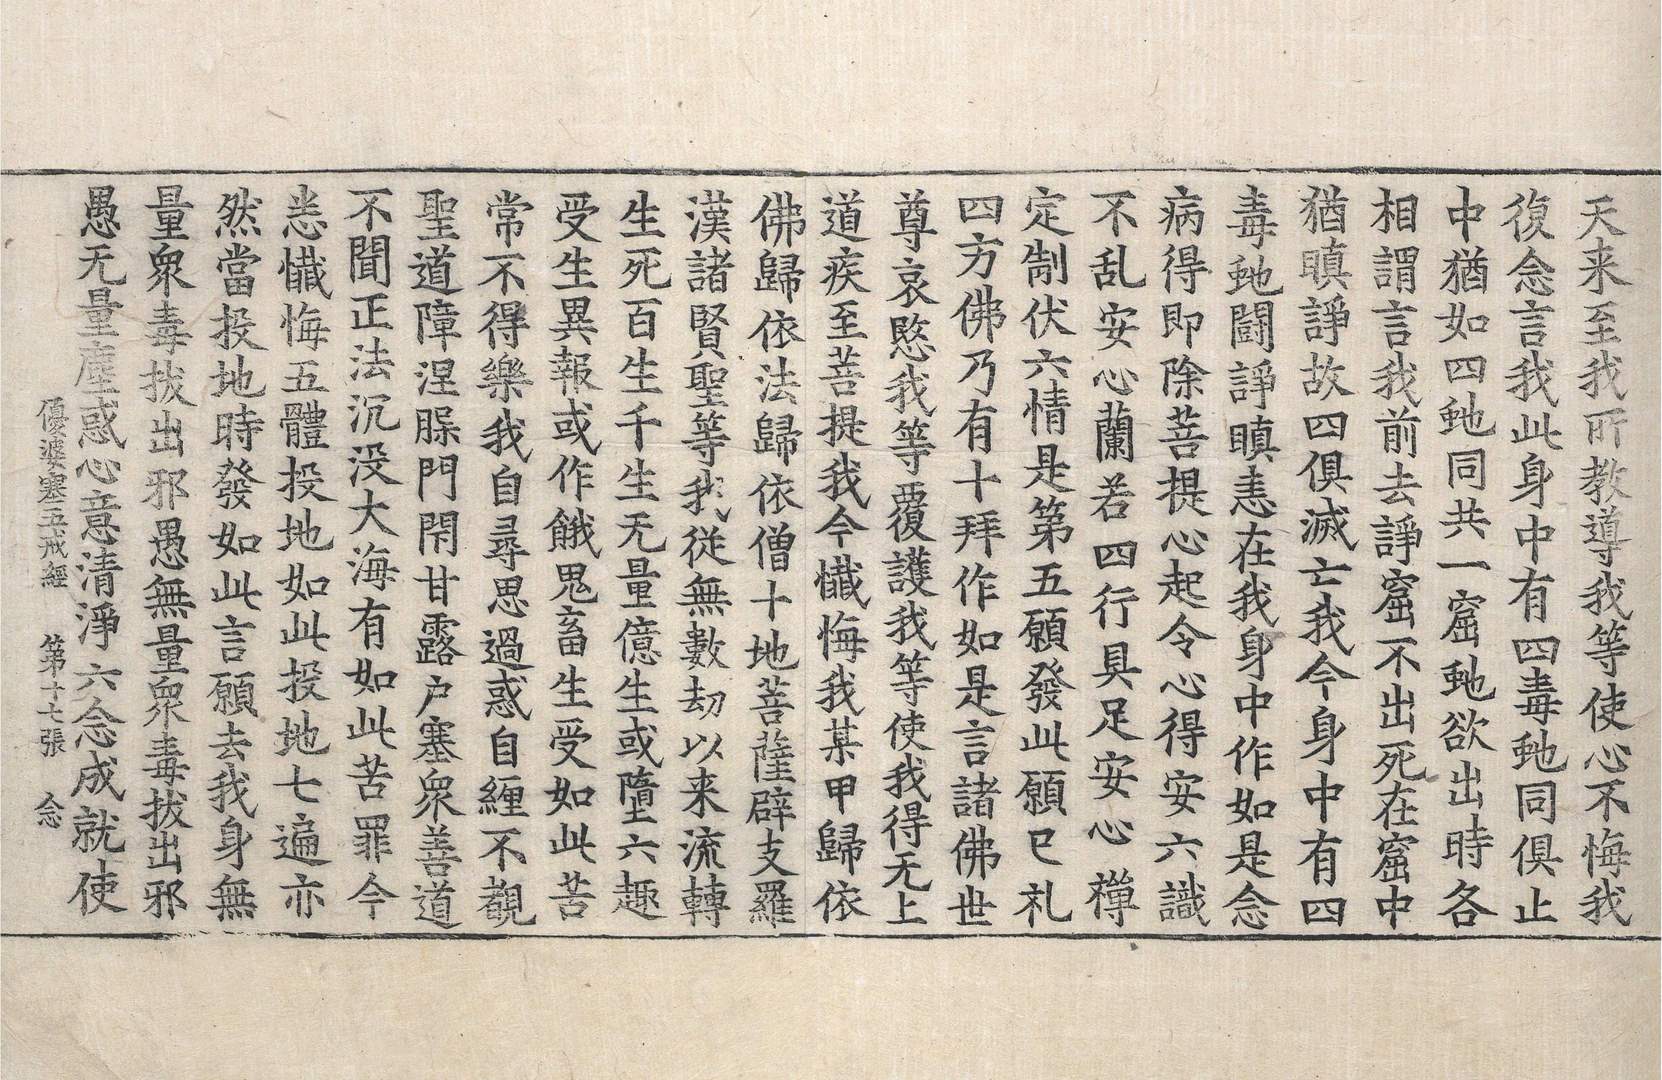 天来至我所教導我等使心不悔我
復念言我此身中有四毒虵同俱止
中猶如四虵同共一窟虵欲出時各
相謂言我前去諍窟不出死在窟中
猶瞋諍故四俱滅亡我今身中有四
毒虵鬪諍瞋恚在我身中作如是念
病得即除菩提心起令心得安六識
不乱安心蘭若四行具足安心禪
定制伏六情是第五願發此願已礼
四方佛乃有十拜作如是言諸佛世
尊哀愍我等覆護我等使我得无上
道疾至菩提我今懺悔我某甲歸依
佛歸依法歸依僧十地菩薩辟支羅
漢諸賢聖等我從無數劫以来流轉
生死百生千生无量億生或墮六趣
受生異報或作餓鬼畜生受如此苦
常不得樂我自尋思過惑自纏不覩
聖道障涅槃門閇甘露户塞衆善道
不聞正法沉没大海有如此苦罪今
悉懺悔五體投地如此投地七遍亦
然當投地時發如此言願去我身無
量衆毒拔出邪愚無量衆毒拔出邪
愚无量塵惑心意清淨六念成就使
優婆塞五戒經　第十七張　念